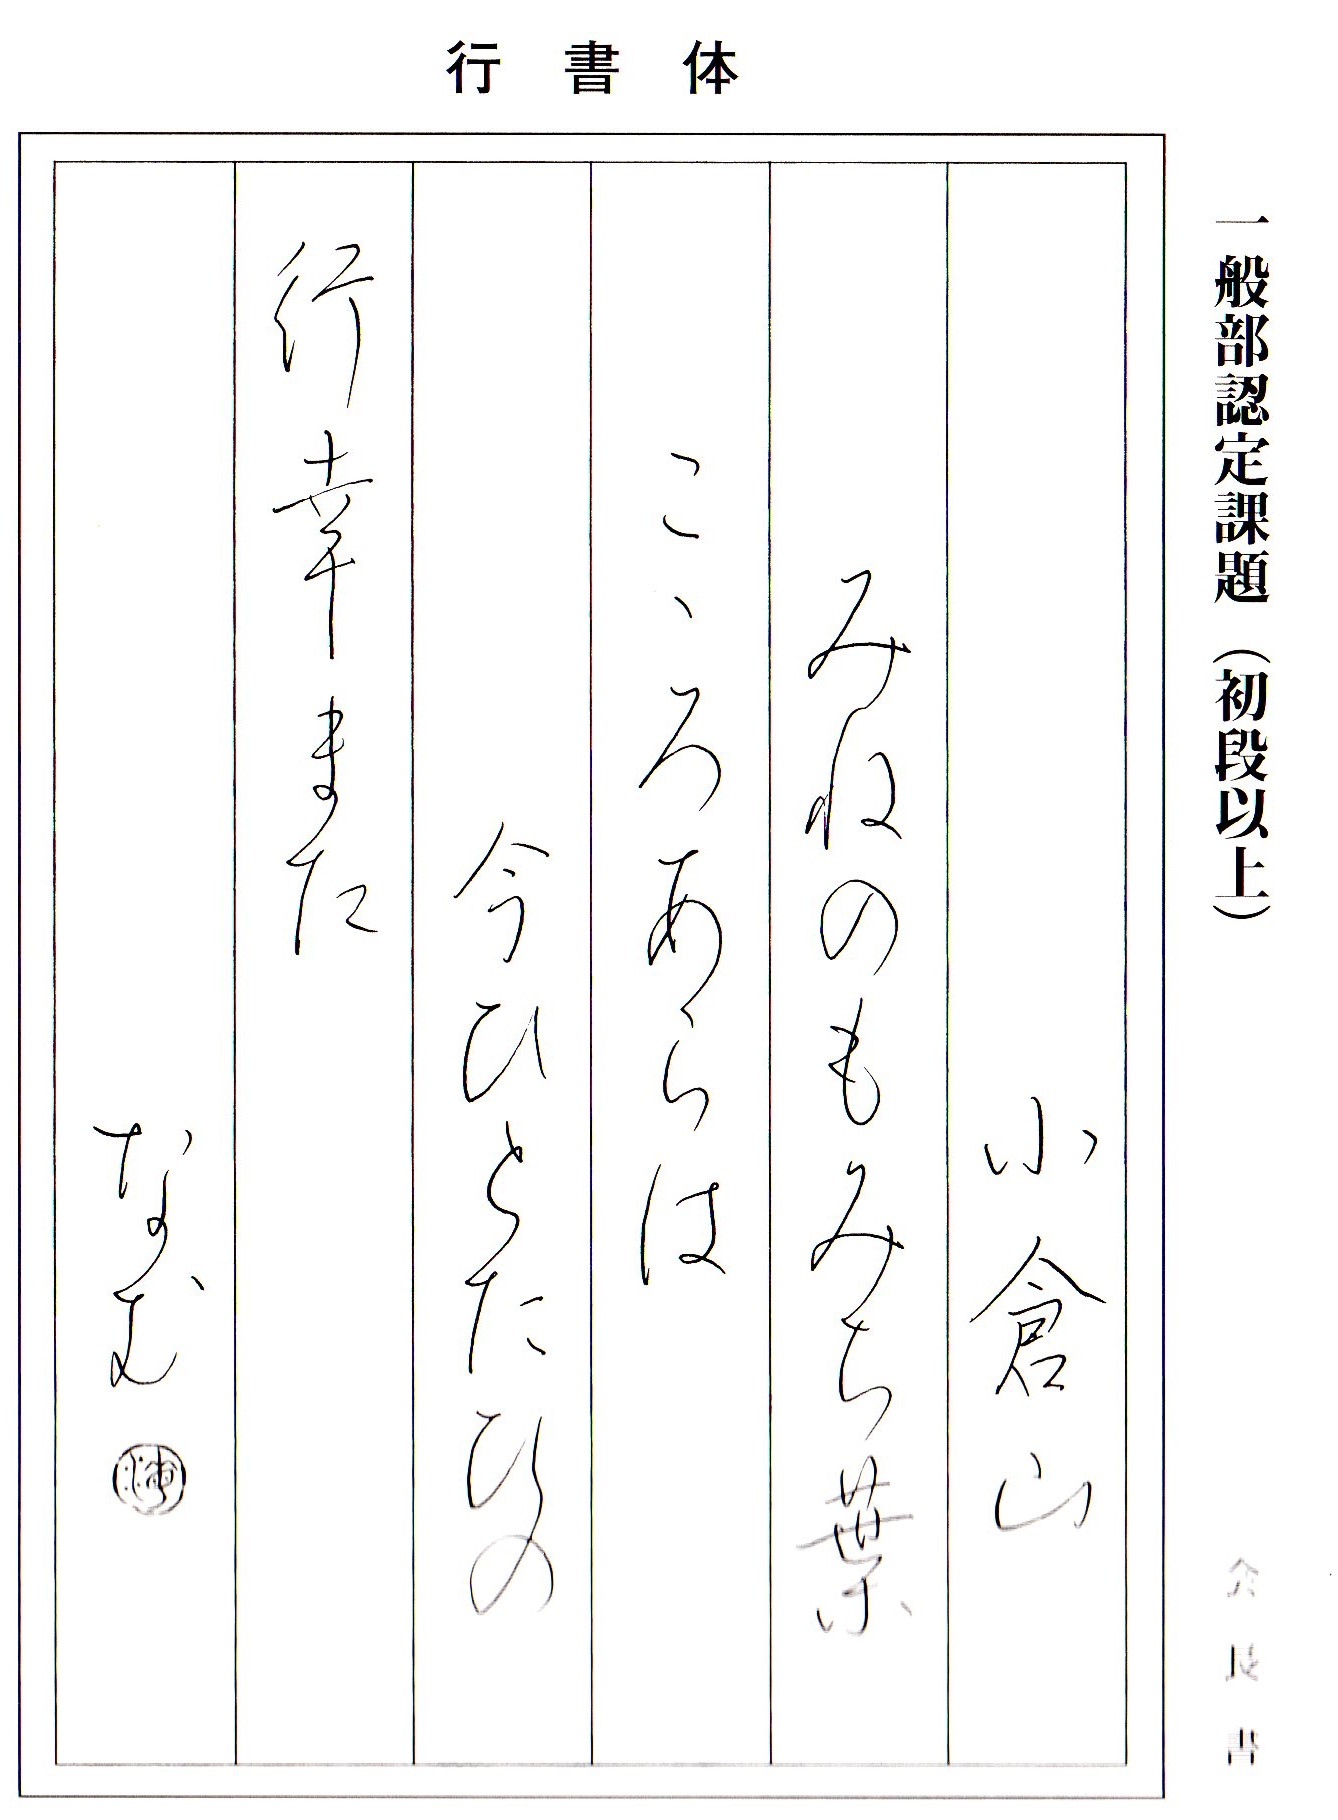 行書体
一般部認定課題（初段以上）
会長書
小倉山
みねのもみち葉
こゝろあらは
今ひとたひの
行幸また
なむ